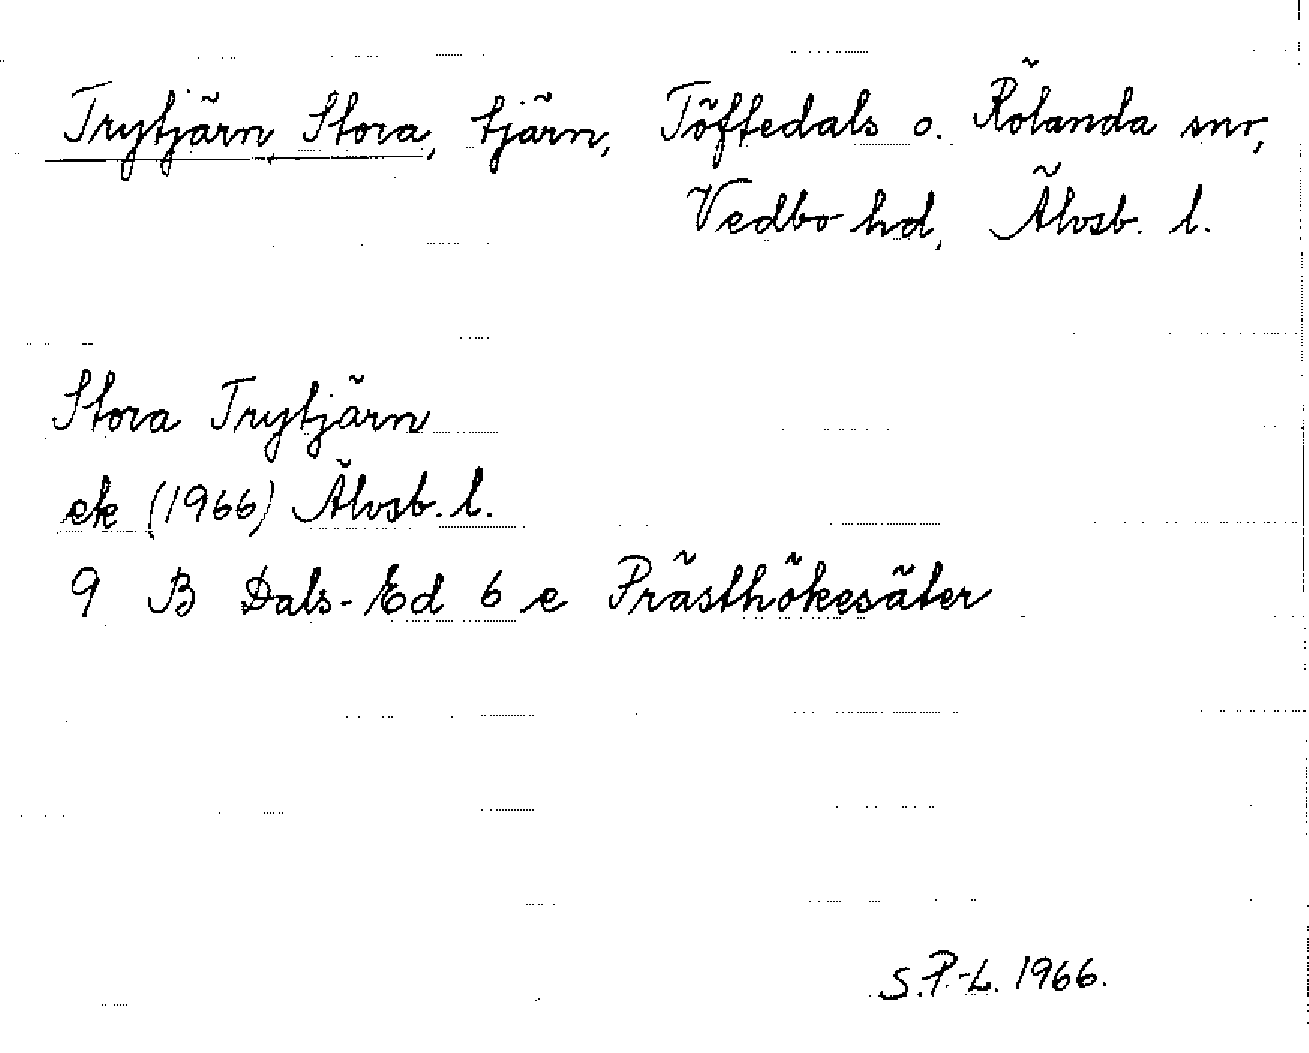 Trytjärn Stora, tjärn, Töftedals o. Rölanda snr,
Vedbo hd, Älvsb. l.
Stora Trytjärn
ek (1966) Älvsb. l.
9 B Dals-Ed 6 e Prästhökesäter
S.P-L. 1966.